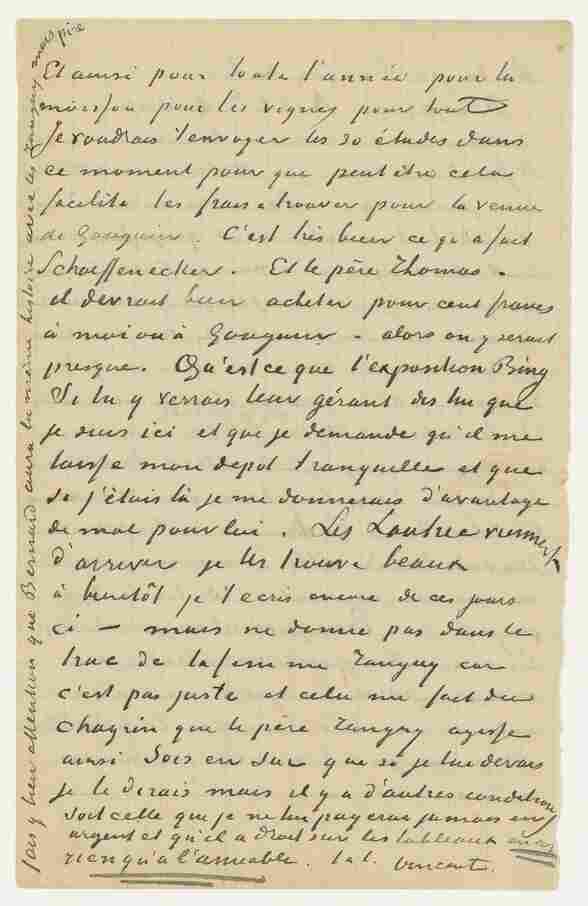 Et ainsi pour toute l'année pour la
moisson pour les vignes pour tout
Je voudrais t'envoyer les 30 études dans
ce moment pour que peut être cela
facilite les frais a trouver pour la venue
de Gauguin. C'est très bien ce qu'a fait
Schaeffenecker. Et le père Thomas.
il devrait bien acheter pour cent francs
à moi ou à Gauguin – alors on y serait
presque. Qu'est ce que l'exposition Bing
Si tu y verrais leur gérant dis lui que
je suis ici et que je demande qu'il me
laisse mon depot tranquille et que
si j'étais là je me donnerais d'avantage
de mal pour lui. Les Lautrec viennent
d'arriver je les trouve beaux
à bientôt je t'ecris encore de ces jours
ci – mais ne donne pas dans le
truc de la femme Tanguy car
c'est pas juste et cela me fait du
chagrin que le père Tanguy agisse
ainsi Sois en sur que si je lui devais
je le dirais mais il y a d'autres conditions
soit celle que je ne lui payerai jamais en
argent et qu'il a droit sur les tableaux
rien qu'a l'amiable. t. à t. Vincent.
fais y bien attention que Bernard aura la même histoire avec les Tanguy mais pire